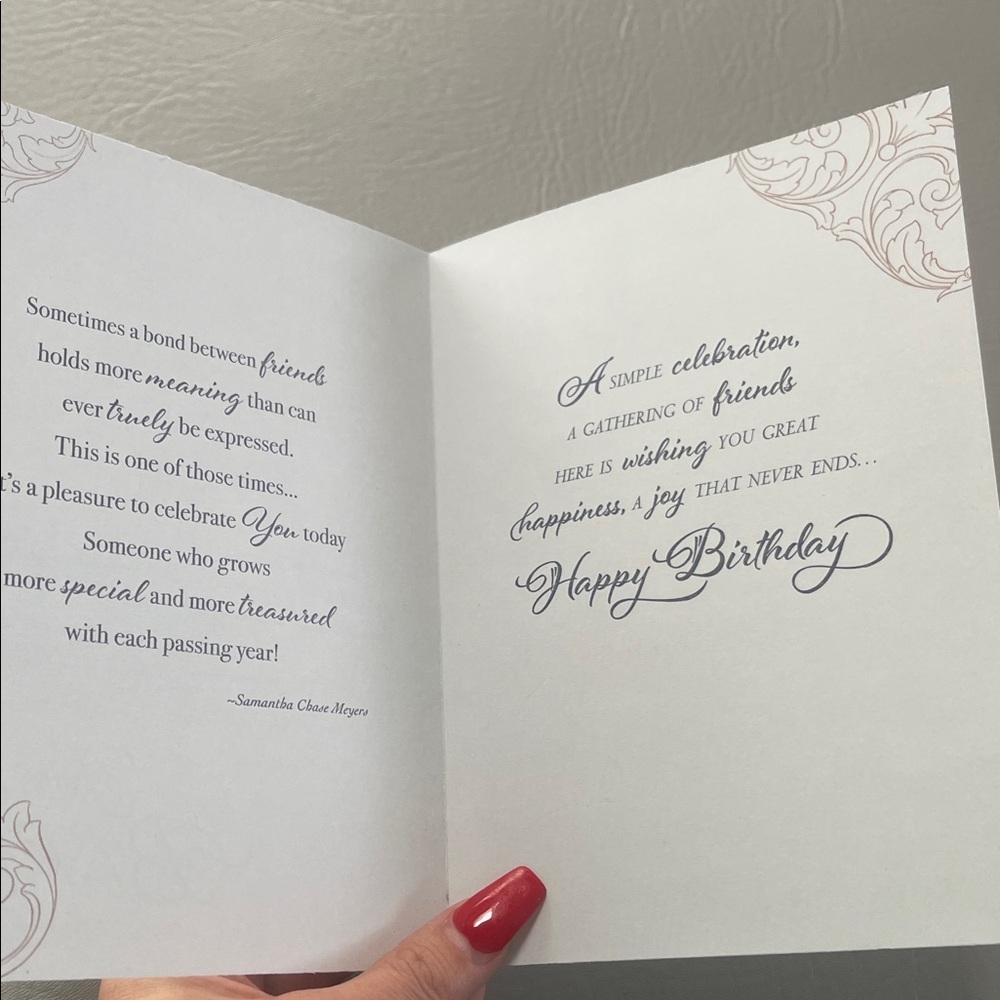 Sometimes a bond between friends
holds more meaning than can
ever truely be expressed.
This is one of those times...
t's a pleasure to celebrate You today
Someone who grows
more special and more treasured
with each passing year!
~Samantha Chase Meyers
A SIMPLE celebration,
A GATHERING OF friends
HERE IS wishing YOU GREAT
happiness, A joy THAT NEVER ENDS...
Happy Birthday